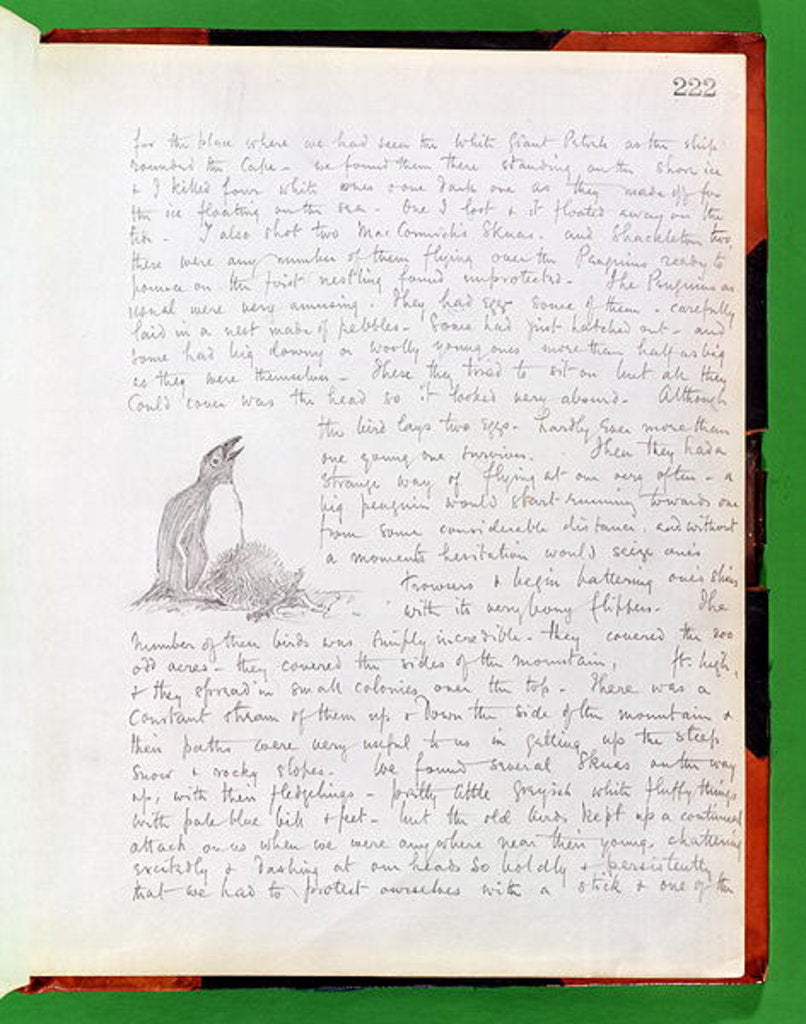 222
for the place where we had seen the White Giant Petrels as the ship
rounded the Cape - we found them there standing on the shore ice
& I killed four white ones & one dark one as they made off for
the ice floating on the sea - One I lost & it floated away on the
I also shot two MacCormick's Skuas. and Shackleton two,
there were any number of them flying over the Penguins ready to
pounce on the first nestling found unprotected - The Penguins as
usual were very amusing. They had eggs some of them - carefully
laid in a nest made of pebbles - Some had just hatched out - and
some had big downy or woolly young ones more than half as big
as they were themselves - These they tried to sit on but all they
could cover was the head so it looked very absurd - Although
the bird lays two eggs - hardly ever more than
one young one survives. Then they had a
strange way of flying at one very often - a
big penguin would start running towards one
from some considerable distance, and without
a moments hesitation would seize one's
trowsers & begin battering one's shins
with its very bony flippers - The
number of these birds was simply incredible - they covered the 200
odd acres - they covered the sides of the mountain, ft. high,
& they spread in small colonies over the top - There was a
constant stream of them up & down the side of the mountain &
their paths were very useful to us in getting up the steep
snow & rocky slopes. We found several Skuas on the way
up, with their fledgelings - pretty little grayish white fluffy things
with pale blue bill & feet - but the old birds kept up a continual
attack on us when we were anywhere near their young, chattering
excitedly & dashing at our heads so boldly & persistently
that we had to protect ourselves with a stick & one of the